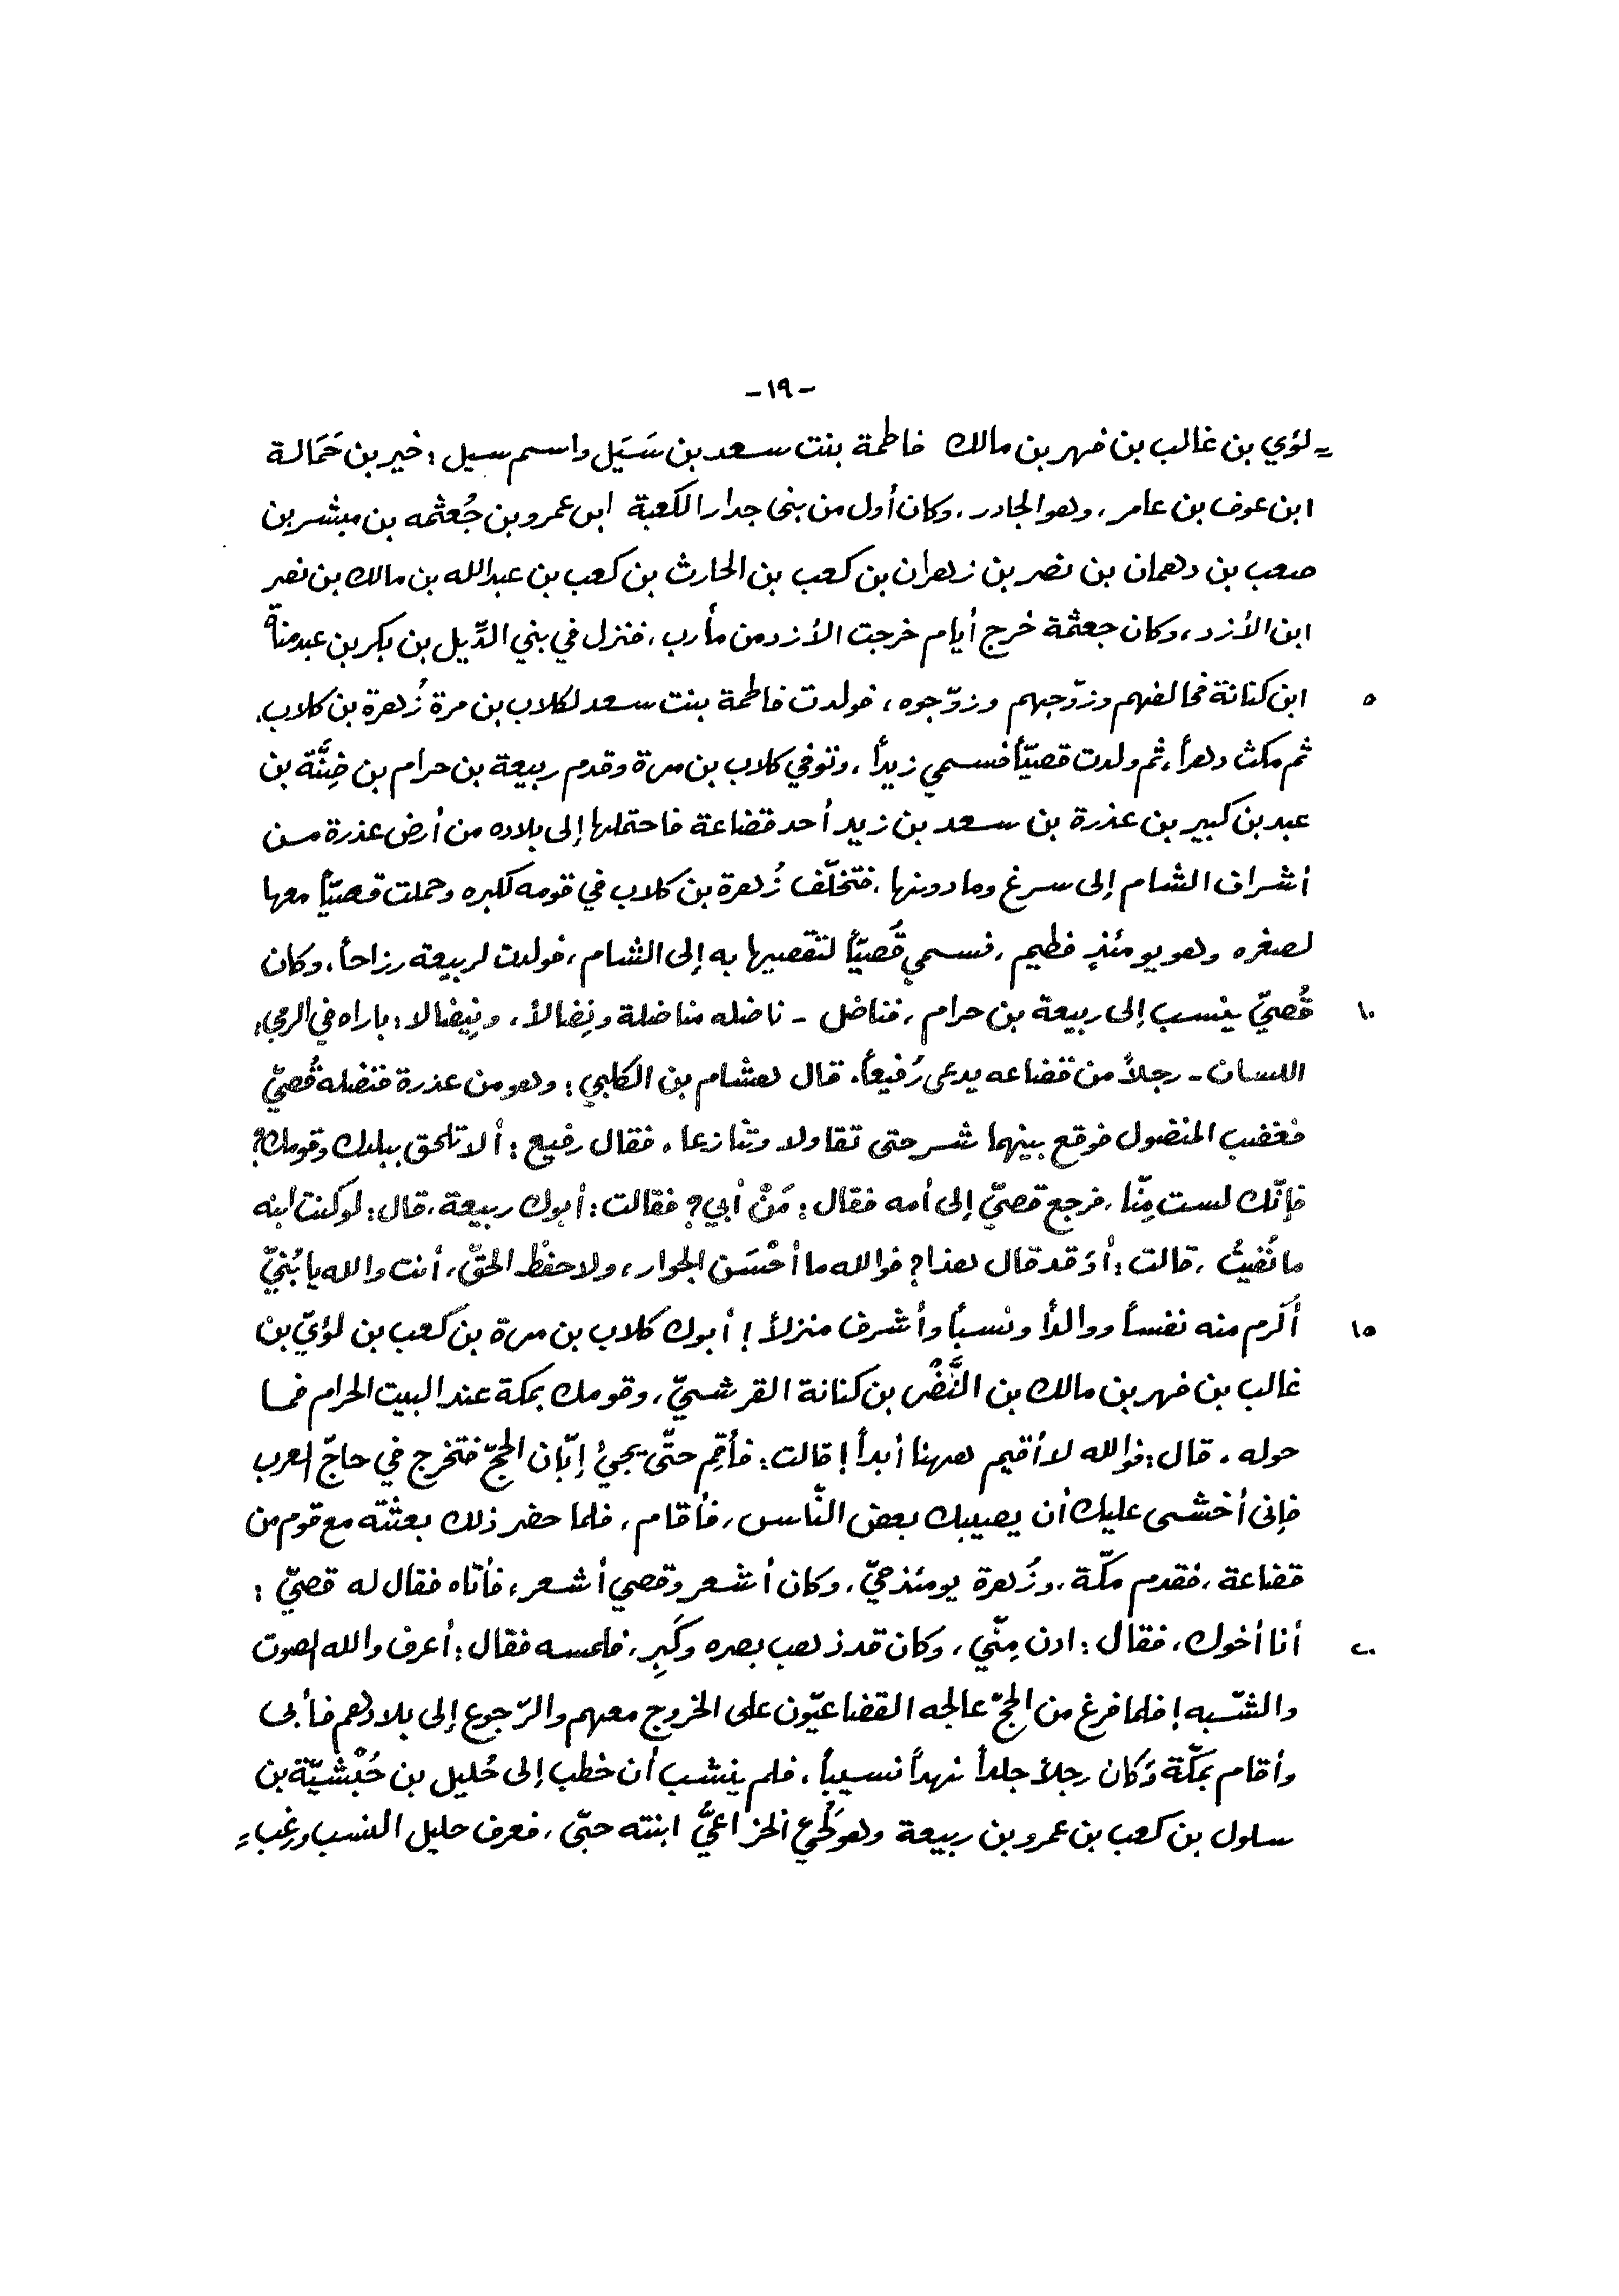 -١٩-
= لؤي بن غالب بن فهر بن مالك فاطمة بنت سعد بن سَيَل واسم سيل : خير بن حَمَالة
ابن عوف بن عامر، وهو الجادر، وكان أول من بنى جدار الكعبة ابن عمرو بن جُعثمه بن مبشر بن
صعب بن دهمان بن نصر بن زهران بن كعب بن الحارث بن كعب بن عبدالله بن مالك بن نصر
ابن الأزد، وكان جعثمة خرج أيام خرجت الأزد من مأرب، فنزل في بني الدِّيل بن بكر بن عبدمناة
٥ ابن كنانة فحالفهم وزوّجهم وزوّجوه، فولدت فاطمة بنت سعد لكلاب بن مرة زُهرة بن كلاب،
ثم مكث دهراً، ثم ولدت قصيّاً فسمي زيداً، وتوفي كلاب بن مرة وقدم ربيعة بن حرام بن ضِنَّة بن
عبد بن كبير بن عذرة بن سعد بن زيد أحد قضاعة فاحتملها إلى بلاده من أرض عذرة من
أشراف الشام إلى سرغ وما دونها، فتخلّف زُهرة بن كلاب في قومه لكبره وحملت قصيّاً معها
لصغره وهو يومئذٍ فطيم، فسمي قُصيّاً لتقصيها به إلى الشام، فولدت لربيعة رزاحاً، وكان
١٠ قُصيّ ينسب إلى ربيعة بن حرام، فناضل - ناضله مناضلة ونِضالاً، ونِيضالا : باراه في الرمي :
اللسان - رجلاً من قضاعه يدعى رُفيعاً. قال هشام بن الكلبي : وهو من عذرة فنضله قُصيّ
فغضب المنضول فوقع بينهما شر حتى تقاولا وتنازعا، فقال رفيع : ألا تلحق ببلدك وقومك؟
فإنّك لست مِنّا، فرجع قصيّ إلى أمه فقال : مَنْ أبي؟ فقالت : أبوك ربيعة، قال : لو كنت ابنه
ما نُفيتُ، قالت : أوَقد قال هذا؟ فوالله ما أحْسَن الجوار، ولا حفظ الحقّ، أنت والله يا بُنيّ
١٥ أكرم منه نفساً ووالداً ونسباً وأشرف منزلاً ! أبوك كلاب بن مرة بن كعب بن لؤيّ بن
غالب بن فهر بن مالك بن النَّضْر بن كنانة القرشيّ، وقومك بمكة عند البيت الحرام فما
حوله. قال : فوالله لا أقيم ههنا أبداً ! قالت : فأقم حتّى يجيءُ إبّان الحجّ فتخرج في حاجّ العرب
فإنى أخشى عليك أن يصيبك بعض النّاس، فأقام، فلما حضر ذلك بعثته مع قوم من
قضاعة، فقدم مكّة، وزُهرة يومئذ حيّ، وكان أشعر وقصي أشعر، فأتاه فقال له قصيّ :
٢٠ أنا أخوك، فقال : ادن مِنّي، وكان قد ذهب بصره وكَبِر، فلمسه فقال : أعرف والله الصوت
والشّبه ! فلما فرغ من الحجّ عالجه القضاعيّون على الخروج معهم والرّجوع إلى بلادهم فأبى
وأقام بمكّة وكان رجلاً جلداً نهداً نسيباً، فلم ينشب أن خطب إلى حُليل بن حُبْشيّة بن
سلول بن كعب بن عمرو بن ربيعة وهو لُحَي الخزاعيُّ ابنته حبّى، فعرف حليل النسب ورغب =